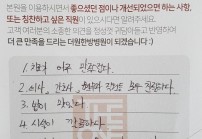 본원을 이용하시면서 좋으셨던 점이나 개선되었으면 하는 사항,
또는 칭찬하고 싶은 직원이 있으시다면 알려주세요.
고객 여러분의 소중한 의견을 정성껏 귀담아듣고 반영하여
더 큰 만족을 드리는 더원한방병원이 되겠습니다 :)
1. 치료 아주 만족합니다.
2. 의사, 간호사, 모두 친절하다.
3. 밥이 맛있다.
4. 시설이 깔끔하다.